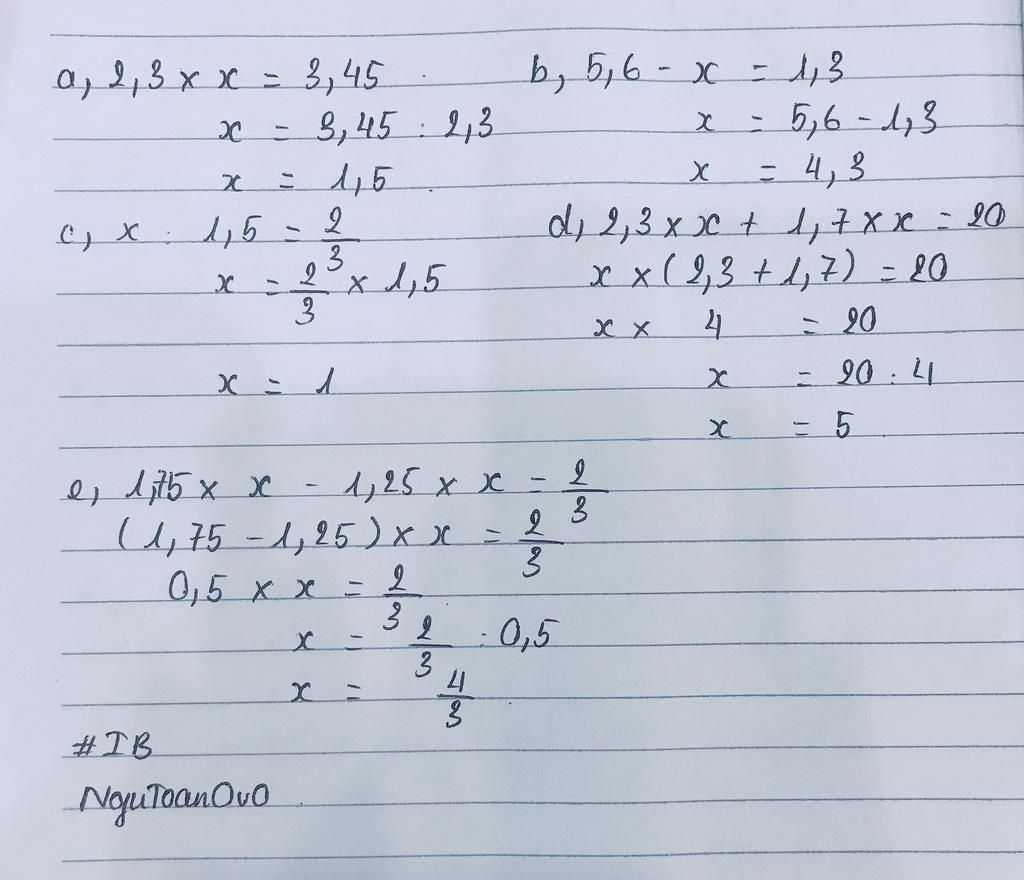 a, 2,3 × x = 3,45
x = 3,45 : 2,3
x = 1,5
b, 5,6 - x = 1,3
x = 5,6 - 1,3
x = 4,3
c, x : 1,5 = 2/3
x = 2/3 × 1,5
x = 1
d, 2,3 × x + 1,7 × x = 20
x × (2,3 + 1,7) = 20
x × 4 = 20
x = 20 : 4
x = 5
e, 1,75 × x - 1,25 × x = 2/3
(1,75 - 1,25) × x = 2/3
0,5 × x = 2/3
x = 2/3 : 0,5
x = 4/3
#IB
NguToanOvO